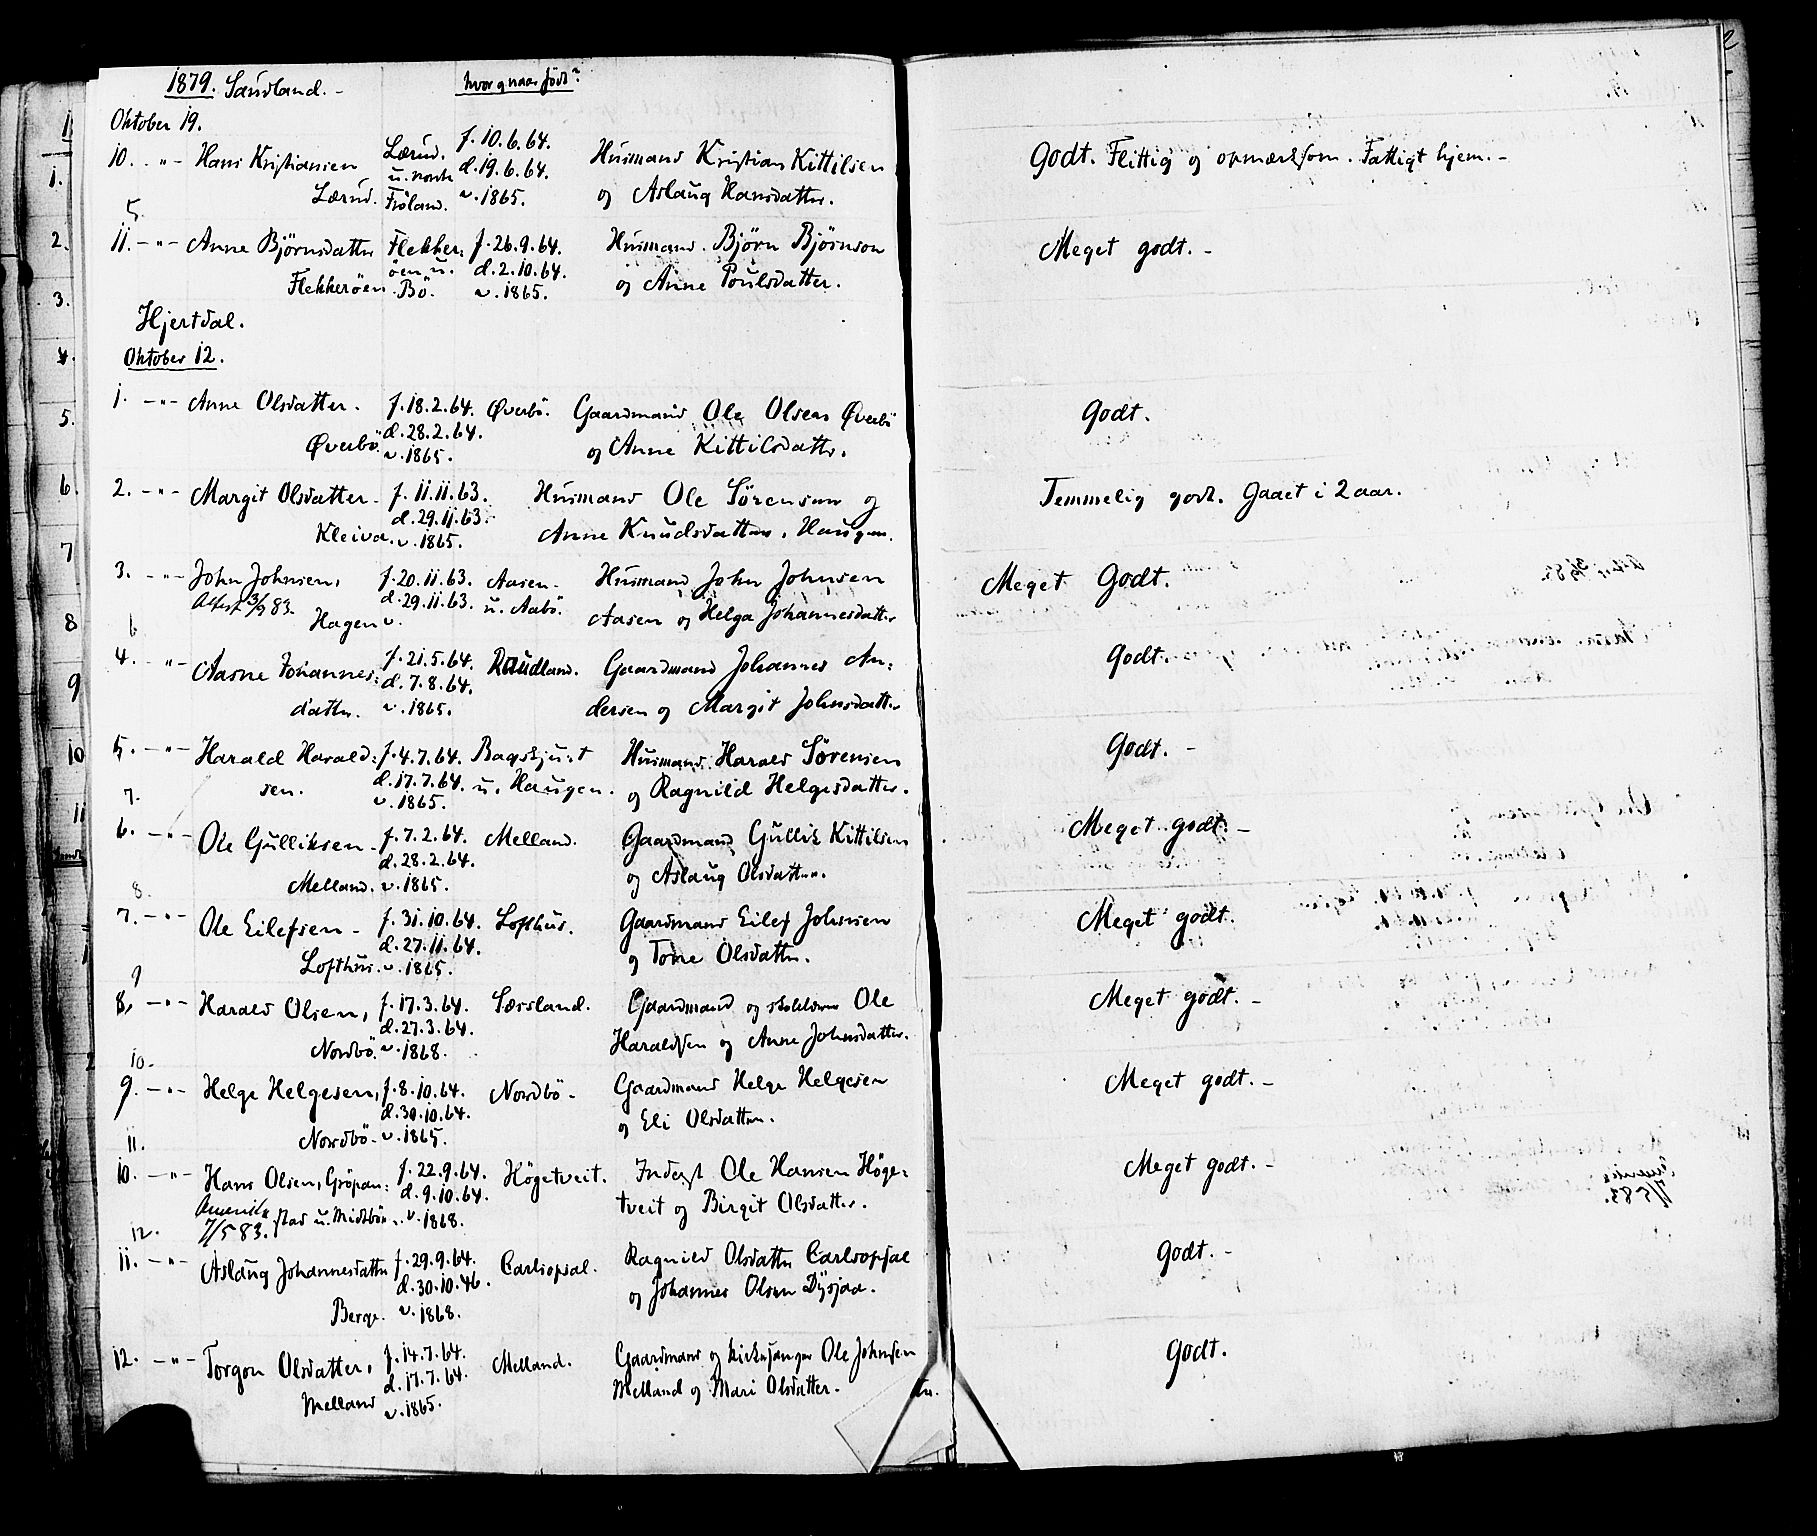 1879. Saudland. - hvor g naar født?
Oktober 19.
10. - " - Hans Kristiansen Lærud. f. 10.6.64. Husmand Kristian Kittilsen Godt. Flittig og opmærksom. Fattigt hjem. -
u. nordre d. 19.6.64.
Lærud. Frøland. v. 1865. og Aslaug Hansdatter.
5.
11. - " - Anne Bjørnsdatter Flekker: f. 26.9.64. Husmand. Bjørn Bjørnson Meget godt. -
øen u. d. 2.10.64.
Flekkerøen. Bö. v. 1865. og Anne Poulsdatter.
Hjertdal.
Oktober 12.
1. - " - Anne Olsdatter. f. 18.2.64. Øverbö. Gaardmand Ole Olsen Øverbö Godt.
d. 28.2.64.
Øverbö. v. 1865. og Anne Kittilsdatter.
2. - " - Margit Olsdatter - f. 11.11.63. Husmand Ole Sørensen og Temmelig godt. Gaaet i 2 aar.
d. 29.11.63.
Kleiva. v. 1865. Anne Knudsdatter, Haugen.
3. - " - John Johnsen, f. 20.11.63. Aasen - Husmand John Johnsen Meget Godt.
Attest 3/9 83. d. 29.11.63. u. Aabö.
Hagen v. Aasen og Helga Johannesdatter
6
4. - " - Aasne Johannes: f. 21.5.64. Raudland. Gaardmand Johannes An: Godt. -
d. 7.8.64.
datter. v. 1865. dersen og Margit Johnsdatter
5. - " - Harald Harald: f. 4.7.64. Bagskjust Husmand Harald Sørensen Godt. -
sen. d. 17.7.64. u. Haugen. og Ragnild Helgesdatter.
7. v. 1865.
6. - " - Ole Gulliksen - f. 7.2.64. Melland. Gaardmand Gullik Kittilsen Meget godt. -
d. 28.2.64.
8. Melland. v. 1865. og Aslaug Olsdatter.
7. - " - Ole Eilefsen - f. 31.10.64. Lofthus. Gaardmand Eilef Johnsen Meget godt.
d. 27.11.64.
9 Lofthus. v. 1865. og Tone Olsdatter.
8, - " - Harald Olsen, f. 17.3.64. Særsland. Gaardmand og skolelærer Ole Meget godt. -
d. 27.3.64.
10. Nordbö. v. 1868. Haraldsen og Anne Johnsdatter.
9. - " - Helge Helgesen, f. 8.10.64. Nordbö - Gaardmand Helge Helgesen Meget godt. -
d. 30.10.64.
11. Nordbö. v. 1865. og Eli Olsdatter.
10. - " - Hans Olsen, Gröpan: f. 22.9.64. Högetveit. Inderst Ole Hansen Höge: Meget godt. -
d. 9.10.64.
Amerika stad u. Midtbön. v. 1868. tveit og Birgit Olsdatter.
12. 7/5 83.
11. - " - Aslaug Johannesdatter f. 29.9.64. Carlsopsal. Ragnild Olsdatter Carlsopsal Godt. -
d. 30.10.46.
Berge. v. 1868. og Johannes Olsen Dysjaa.
12. - " - Torgon Olsdatter, f. 14.7.64. Melland. Gaardmand og kirkesanger Ole Johnsen Godt.
d. 17.7.64.
Melland v. 1865. Melland og Mari Olsdatter.